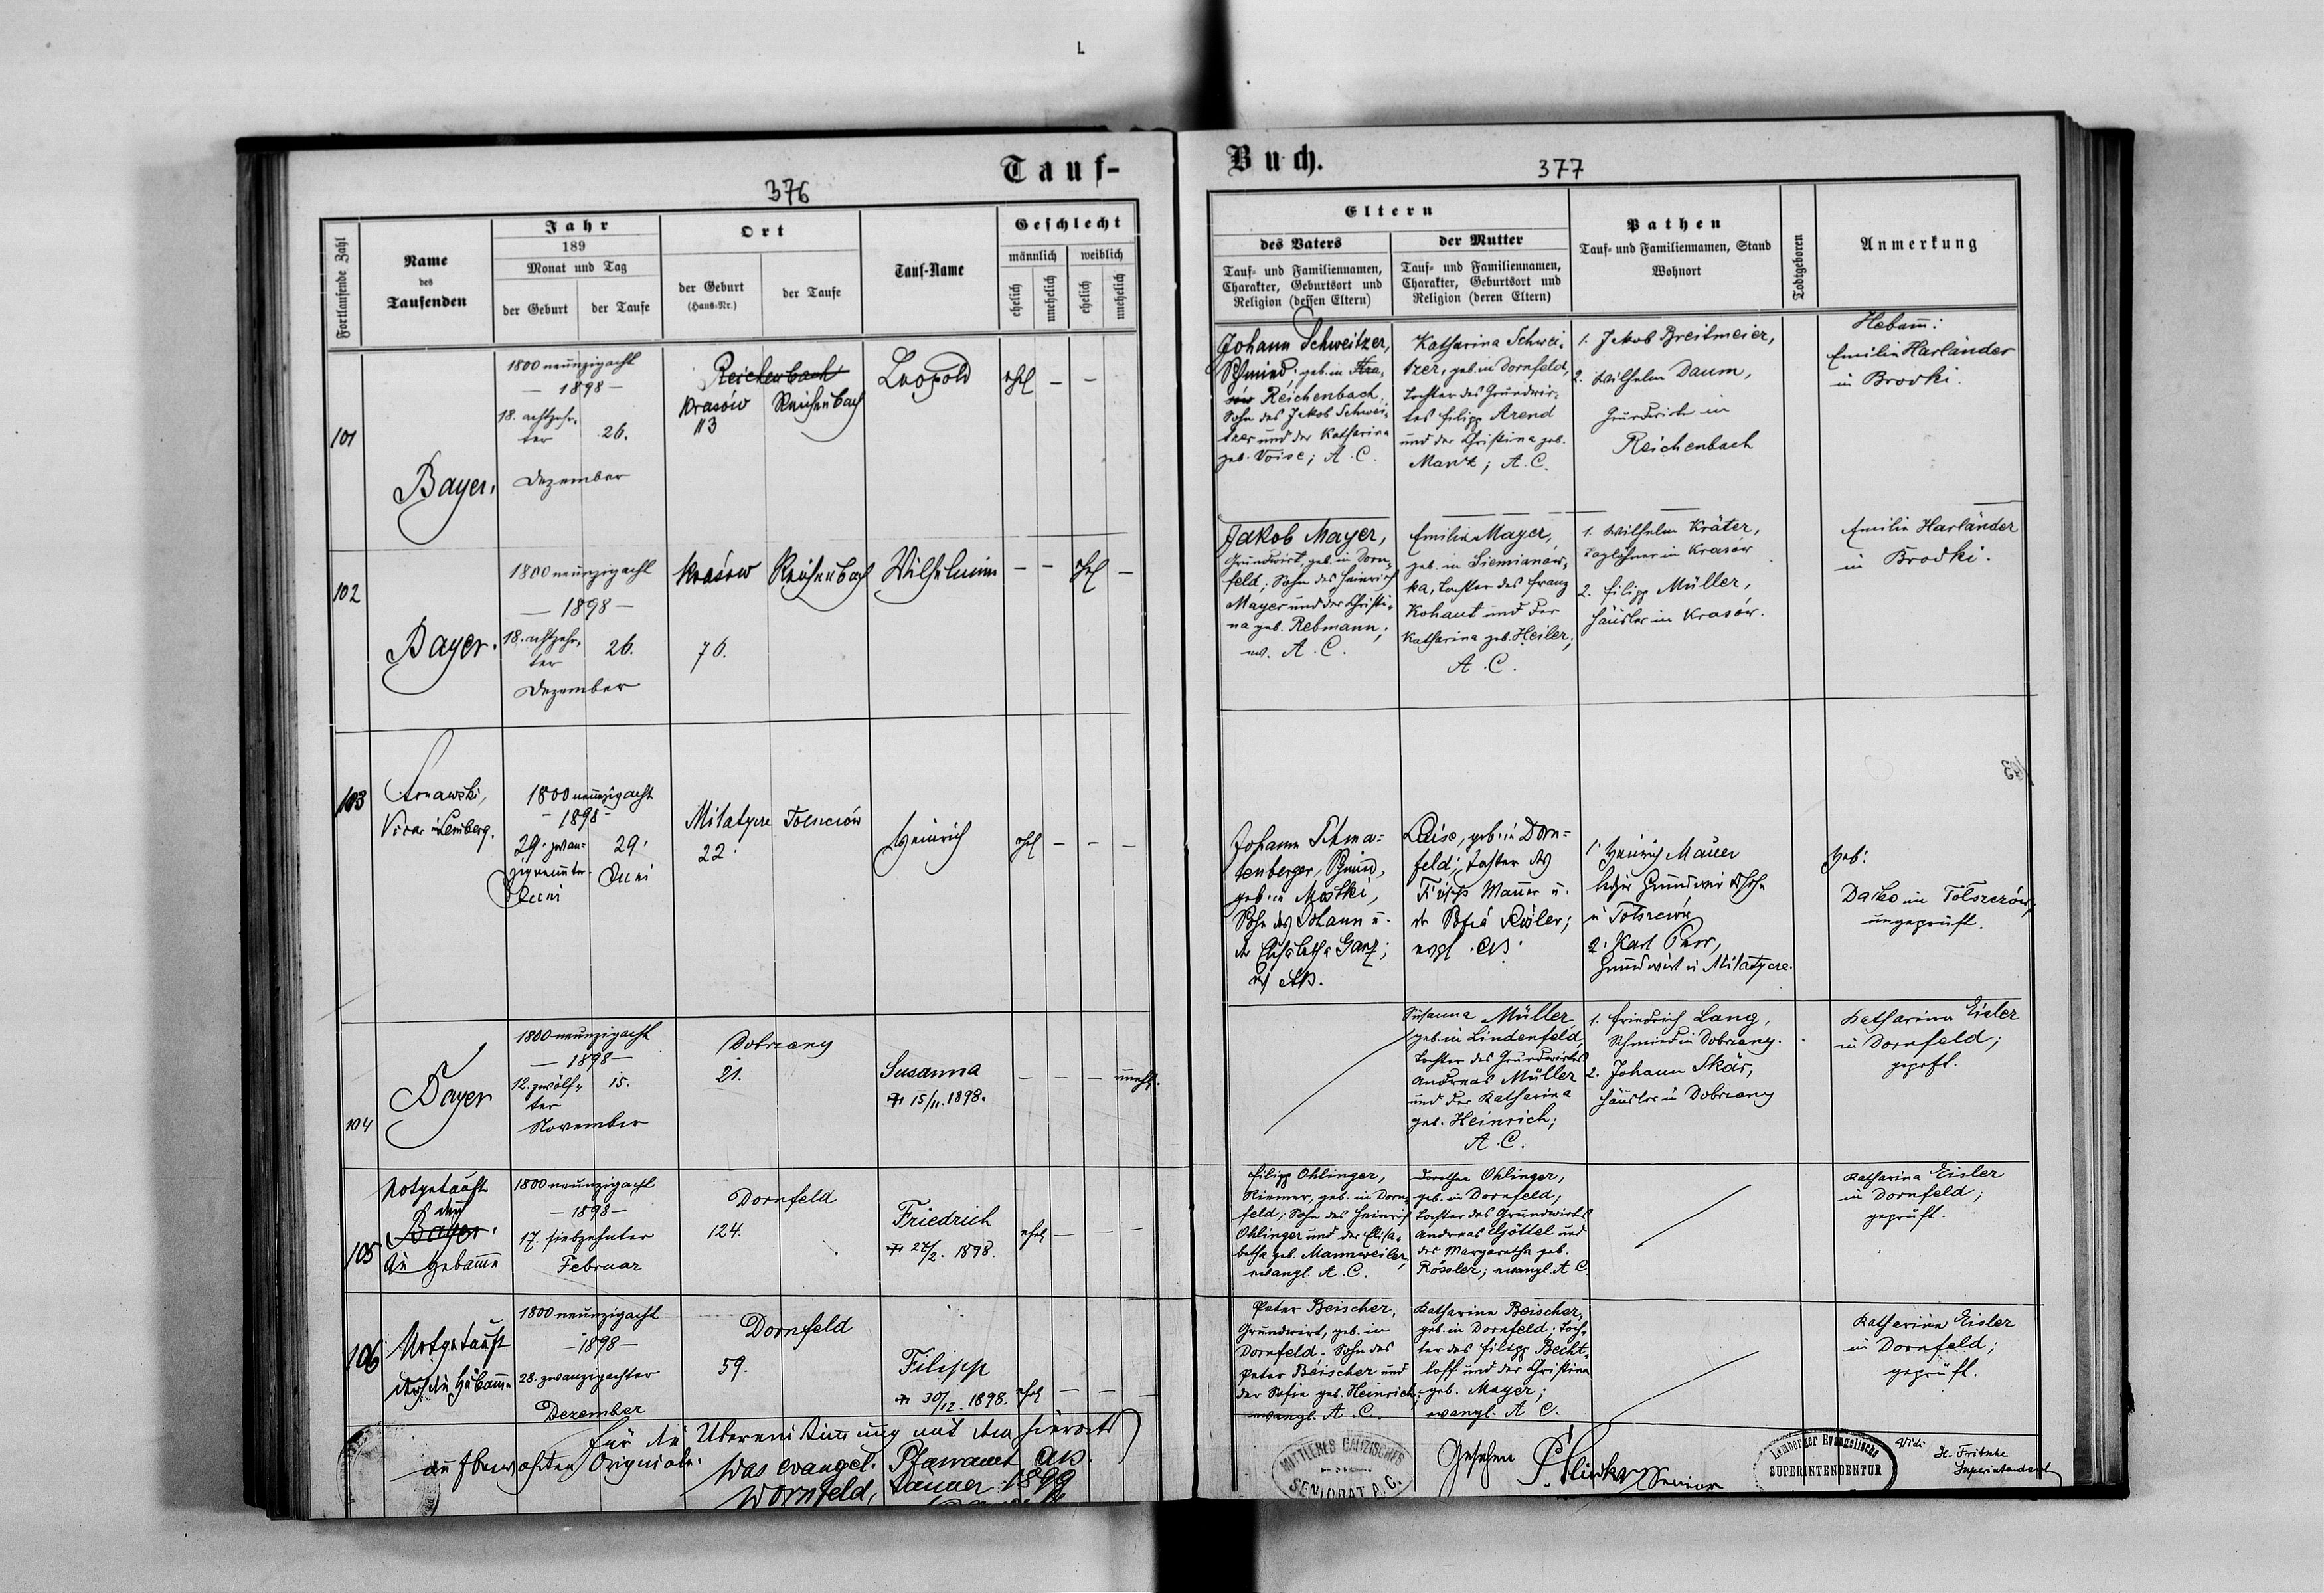 Tauf-
376
Fortlaufende Zahl
Name
des
Taufenden
Jahr
189
Monat und Tag
der Geburt
der Taufe
Ort
der Geburt
(Haus-Nr.)
der Taufe
Tauf-Name
Geschlecht
männlich
weiblich
ehelich
unehelich
ehelich
unehelich
101
Bayer.
1800 neunzigacht
— 1898 —
18. achtzehn-
ter
26.
Dezember
Reichenbach
Krasów
Reichenbach
113
Leopold
ehel
—
—
102
Bayer.
1800 neunzigacht
— 1898 —
18. achtzehn-
ter
26.
Dezember
Krasów
Reichenbach
76.
Wilhelmine
—
—
ehel
—
103
Vicar in Lemberg.
1800 neunzigacht
- 1898 -
29. zwan-
29.
Juni
Juni
Milatycze
22.
Heinrich
ehel
—
—
—
104
Bayer
1800 neunzigacht
— 1898 —
12. zwölf-
ter
15.
November
Dobrzany
21.
Susanna
15/11. 1898.
—
—
—
unehl.
105
Notgetauft
durch
Bayer.
die Hebamme
1800 neunzigacht
— 1898 —
17. siebzehnter
Februar
Dornfeld
124.
Friedrich
27/2. 1898.
ehel
—
—
—
106
Notgetauft
durch die Hebamme
1800 neunzigacht
— 1898 —
28. zwanzigachter
Dezember
Dornfeld
59.
Filipp
30/12. 1898.
ehel
—
—
—
Für die Übereinstimmung mit dem hierorts
aufbewahrten Originale.
Das evangel. Pfarramt AB.
Dornfeld, Januar 1899
Buch.
377
Eltern
des Vaters
Tauf- und Familiennamen,
Charakter, Geburtsort und
Religion (dessen Eltern)
der Mutter
Tauf- und Familiennamen,
Charakter, Geburtsort und
Religion (deren Eltern)
Pathen
Tauf- und Familiennamen, Stand
Wohnort
Todtgeboren
Anmerkung
Johann Schweitzer,
Schmied, geb. in
Reichenbach,
Sohn des Jakob Schwei-
tzer und der Katharina
geb. Voise; A. C.
Katharina Schwei-
tzer, geb. in Dornfeld,
Tochter des Grundwir-
tes Filipp Arend
und der Christina geb.
Mank; A. C.
1. Jakob Breitmeier,
2. Wilhelm Daum,
Grundwirte in
Reichenbach
Hebam:
Emilie Harländer
in Brodki.
Jakob Mayer,
Grundwirt, geb. in Dorn-
feld; Sohn des Heinrich
Mayer und der Christi-
na geb. Rebmann;
ev. A. C.
Emilia Mayer,
geb. in Siemianów-
ka, Tochter des Franz
Kohaut und der
Katharina geb. Heiler;
A. C.
1. Wilhelm Kräter,
Taglöhner in Krasów
2. Filipp Müller,
Häusler in Krasów.
Emilie Harländer
in Brodki.
103
tenberger, Schmied,
geb. in Mostki,
Sohn des Johann u.
der Elisabetha Ganz;
AB.
Luise, geb. in Dorn-
feld; Tochter des
Filipp Mauer u.
der Sofia Rösler;
evgl. AB.
1. Heinrich Mauer
lediger Grundwirtssohn
in Tolszczów
2. Karl Parr,
Grundwirt in Milatycze.
Heb:
Dacko in Tolszczów,
ungeprüft.
Susanna Müller
geb. in Lindenfeld,
Tochter des Grundwirtes
Andreas Müller
und der Katharina
geb. Heinrich;
A. C.
1. Friedrich Lang,
Schmied in Dobrzany.
2. Johann Skár,
Häusler in Dobrzany
Katharina Eisler
in Dornfeld;
geprft.
Filipp Ohlinger,
Riemer, geb. in Dorn-
feld; Sohn des Heinrich
Ohlinger und der Elisa-
betha geb. Mannweiler,
evangl. A. C.
Dorothea Ohlinger,
geb. in Dornfeld;
Tochter des Grundwirtes
Andreas Göttel und
der Margaretha geb.
Rössler; evangl. A C.
Katharina Eisler
in Dornfeld;
geprüft.
Peter Beischer,
Grundwirt, geb. in
Dornfeld. Sohn des
Peter Beischer und
der Sofie geb. Heinrich;
evangl. A. C.
Katharina Beischer,
geb. in Dornfeld; Toch-
ter des Filipp Becht-
loff und der Christina
geb. Mayer;
evangl. A C.
Katharina Eisler
in Dornfeld;
geprüft.
MITTLERES GALIZISCHES
SENIORAT A. C.
Gesehen
Senior
Lemberger Evangelische
SUPERINTENDENTUR
Vidi
Fritsche
Superintendent